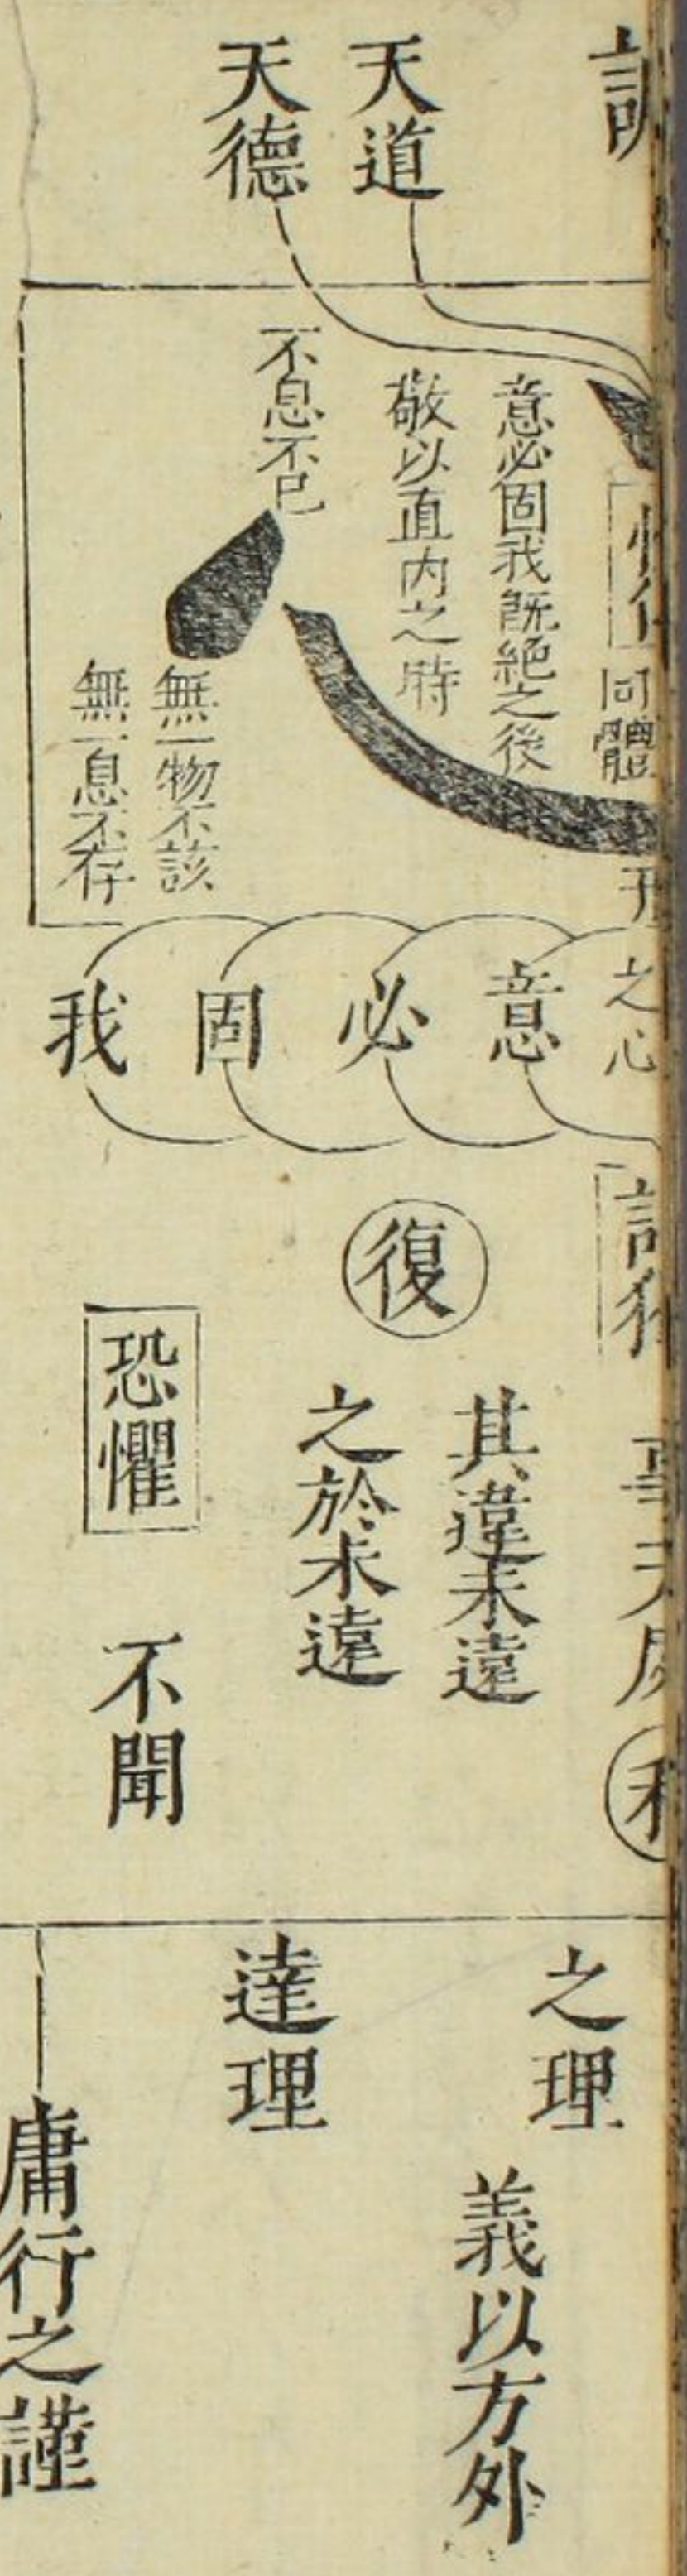 天道
天德
同體
意必固我旣絕之後
敬以直內之時
不息不已
無一物不該
無一息不存
之心
意
必
固
我
復
其違未遠
之於未遠
恐懼
不聞
之理
義以方外
達理
庸行之謹